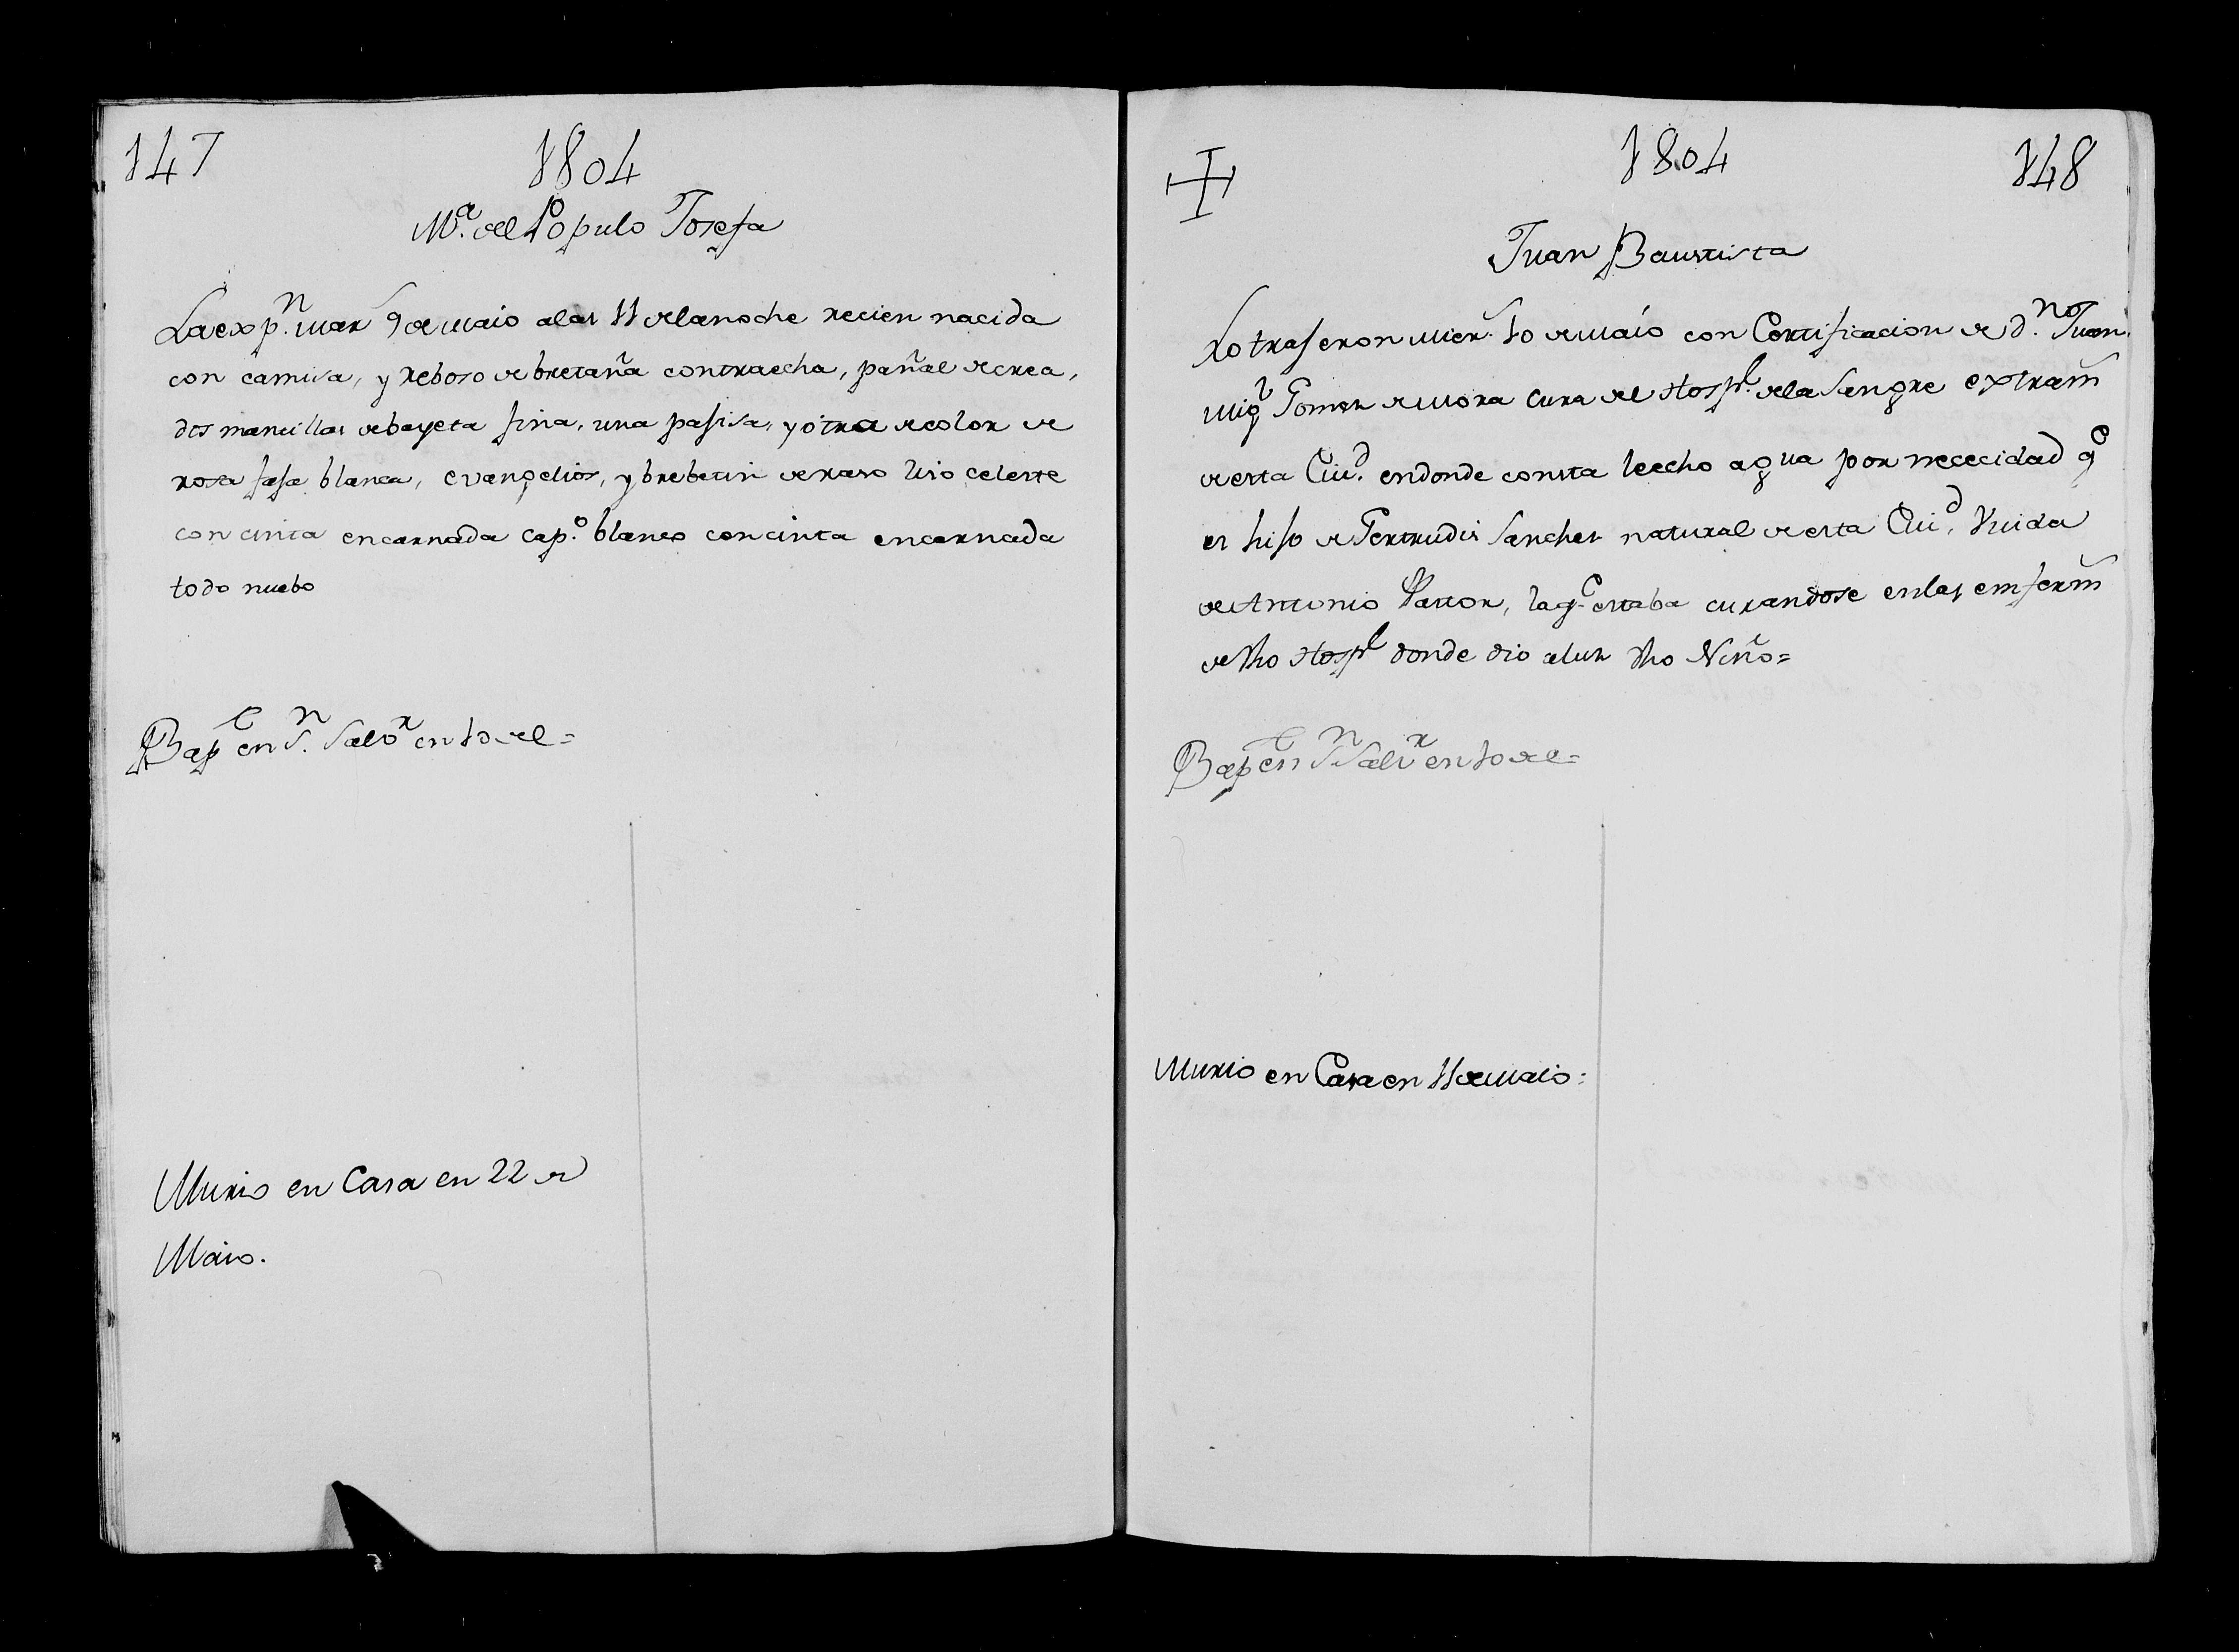 147
1804
M.ª del Populo Josefa
La exp.n mar.s 9 de Maio a las 11 de la noche recien nacida
con camisa, y reboso de bretaña contraecha, pañal de crea,
dos mantillas de bayeta fina, una pajisa, y otra de color de
rosa faja blanca, evangelios, y brebetin de raso liso celeste
con cinta encarnada cap.o blanco con cinta encarnada
todo nuebo
Bap.t en S.n Salv.r en 10 de el=
Murio en Casa en 22 de
Maio.
1804
148
Juan Bautista
Lo trajeron Mier.s 10 de Maio con Certificacion de d.n Juan
Mig.l Gomez de Mora cura de el Hosp.l de la Sangre extram
de esta Ciu.d en donde consta le echo agua por nececidad q.e
es hijo de Gertrudis Sanches natural de esta Ciu.d, Viuda
de Antonio Pastor, la q.e estaba curandose en las enferm
de dho Hosp.l donde dio a luz dho Niño=
Bap.t en S.n Salv.r en 10 de el=
Murio en Casa en 11 de Maio=